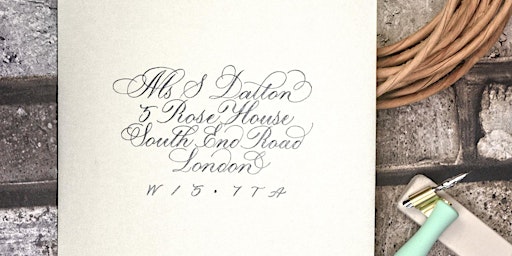 Ms S Dalton
5 Rose House
South End Road
London
W 1 5 · 7 T A